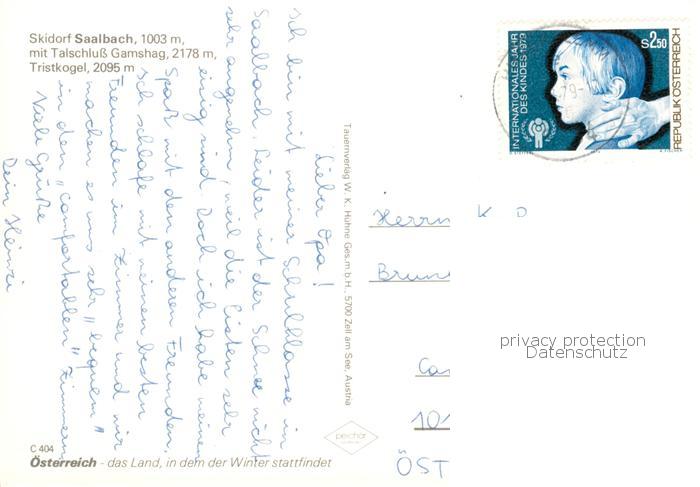 Skidorf Saalbach, 1003 m,
mit Talschluß Gamshag, 2178 m,
Tristkogel, 2095 m
Lieber Opa!
Ich bin mit meiner Schulklasse in
Saalbach. Leider ist der Schnee nicht
sehr angenehm, weil die Pisten sehr
eisig sind. Doch ich habe meinen
Spaß mit den anderen Freunden.
Ich schlafe mit meinen besten
Freunden im Zimmer und wir
machen es uns sehr "bequem"
in dem "comfortablen" Zimmern
Viele Grüße
Dein Heinzi
C 404
Österreich - das Land, in dem der Winter stattfindet
Tauernverlag W. K. Hühne Ges.m.b.H., 5700 Zell am See, Austria
INTERNATIONALES JAHR
DES KINDES 1979
S2.50
REPUBLIK ÖSTERREICH
Herrn K D
Brun
Ca
101
ÖST
privacy protection
Datenschutz